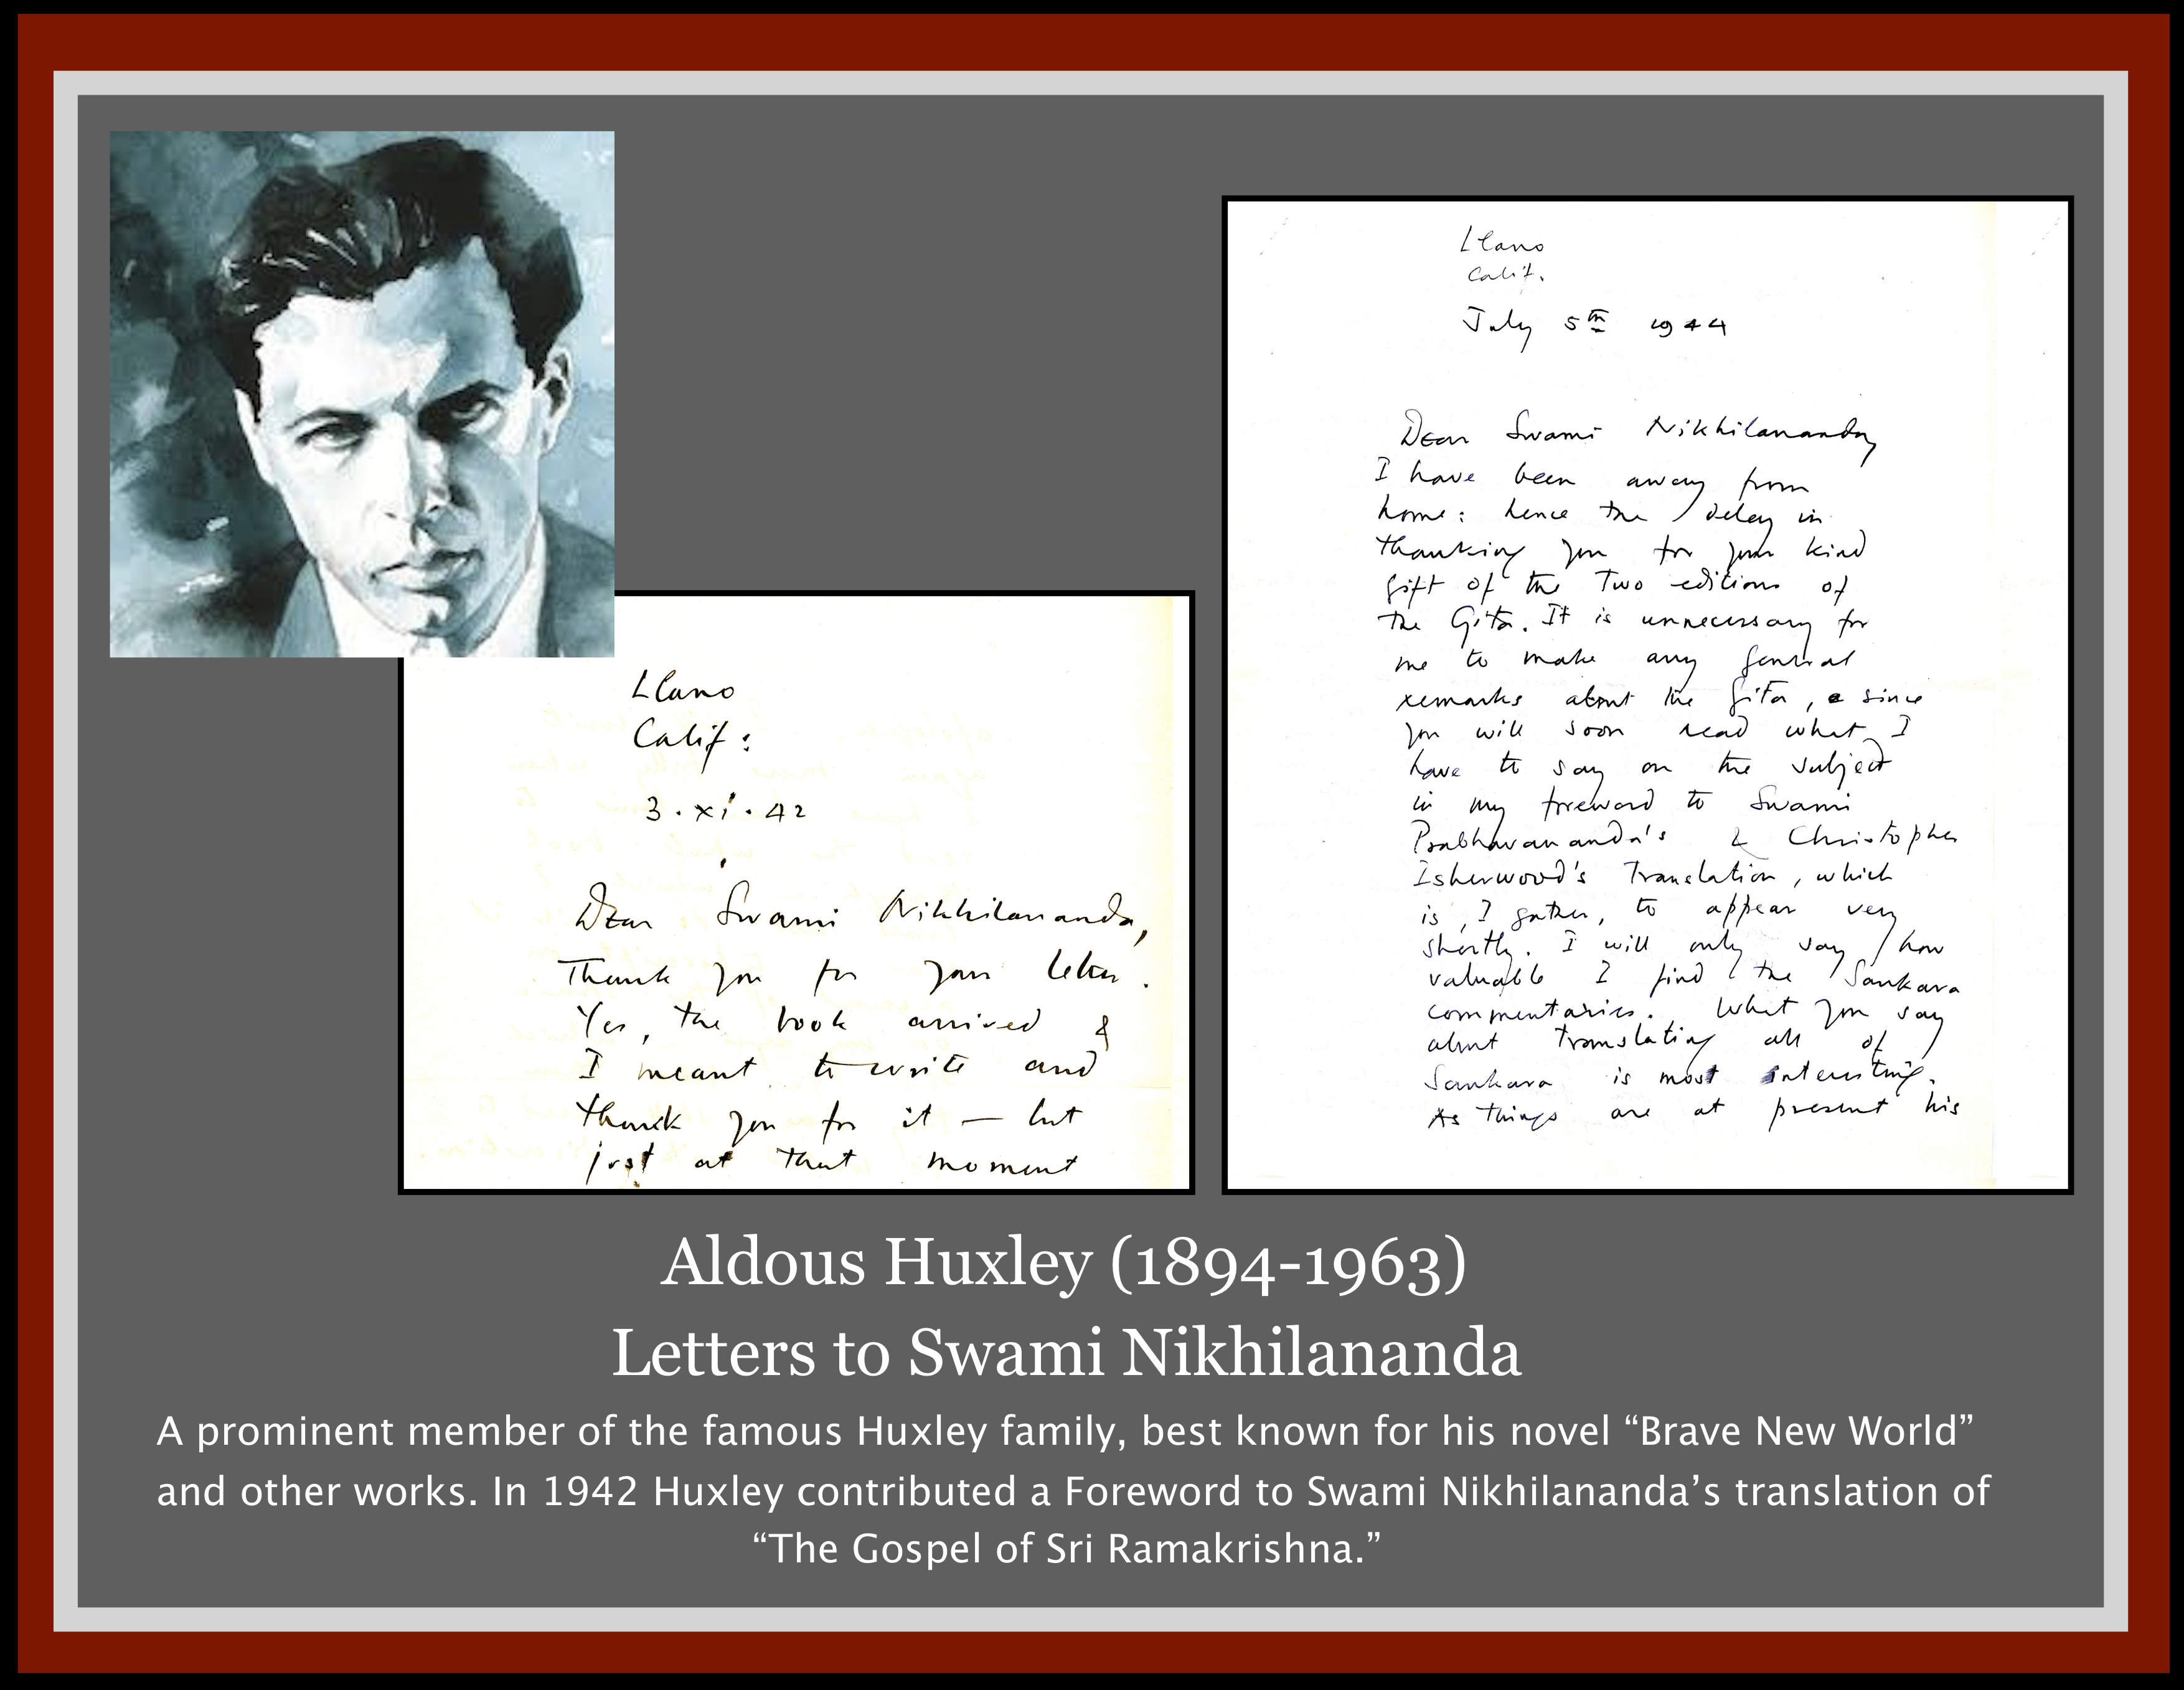 Llano
Calif:
3·xi·42
Dear Swami Nikhilananda,
Thank you for your letter.
Yes, the book arrived &
I meant to write and
thank you for it — but
just at that moment
Llano
Calif.
July 5th 1944
Dear Swami Nikhilananda,
I have been away from
home: hence the delay in
thanking you for your kind
gift of the two editions of
the Gita. It is unnecessary for
me to make any general
remarks about the Gita, since
you will soon read what I
have to say on the subject
in my foreword to Swami
Prabhavananda's & Christopher
Isherwood's Translation, which
is, I gather, to appear very
shortly. I will only say how
valuable I find the Sankara
commentaries. What you say
about translating all of
Sankara is most interesting.
As things are at present his
Aldous Huxley (1894-1963)
Letters to Swami Nikhilananda
A prominent member of the famous Huxley family, best known for his novel “Brave New World”
and other works. In 1942 Huxley contributed a Foreword to Swami Nikhilananda’s translation of
“The Gospel of Sri Ramakrishna.”